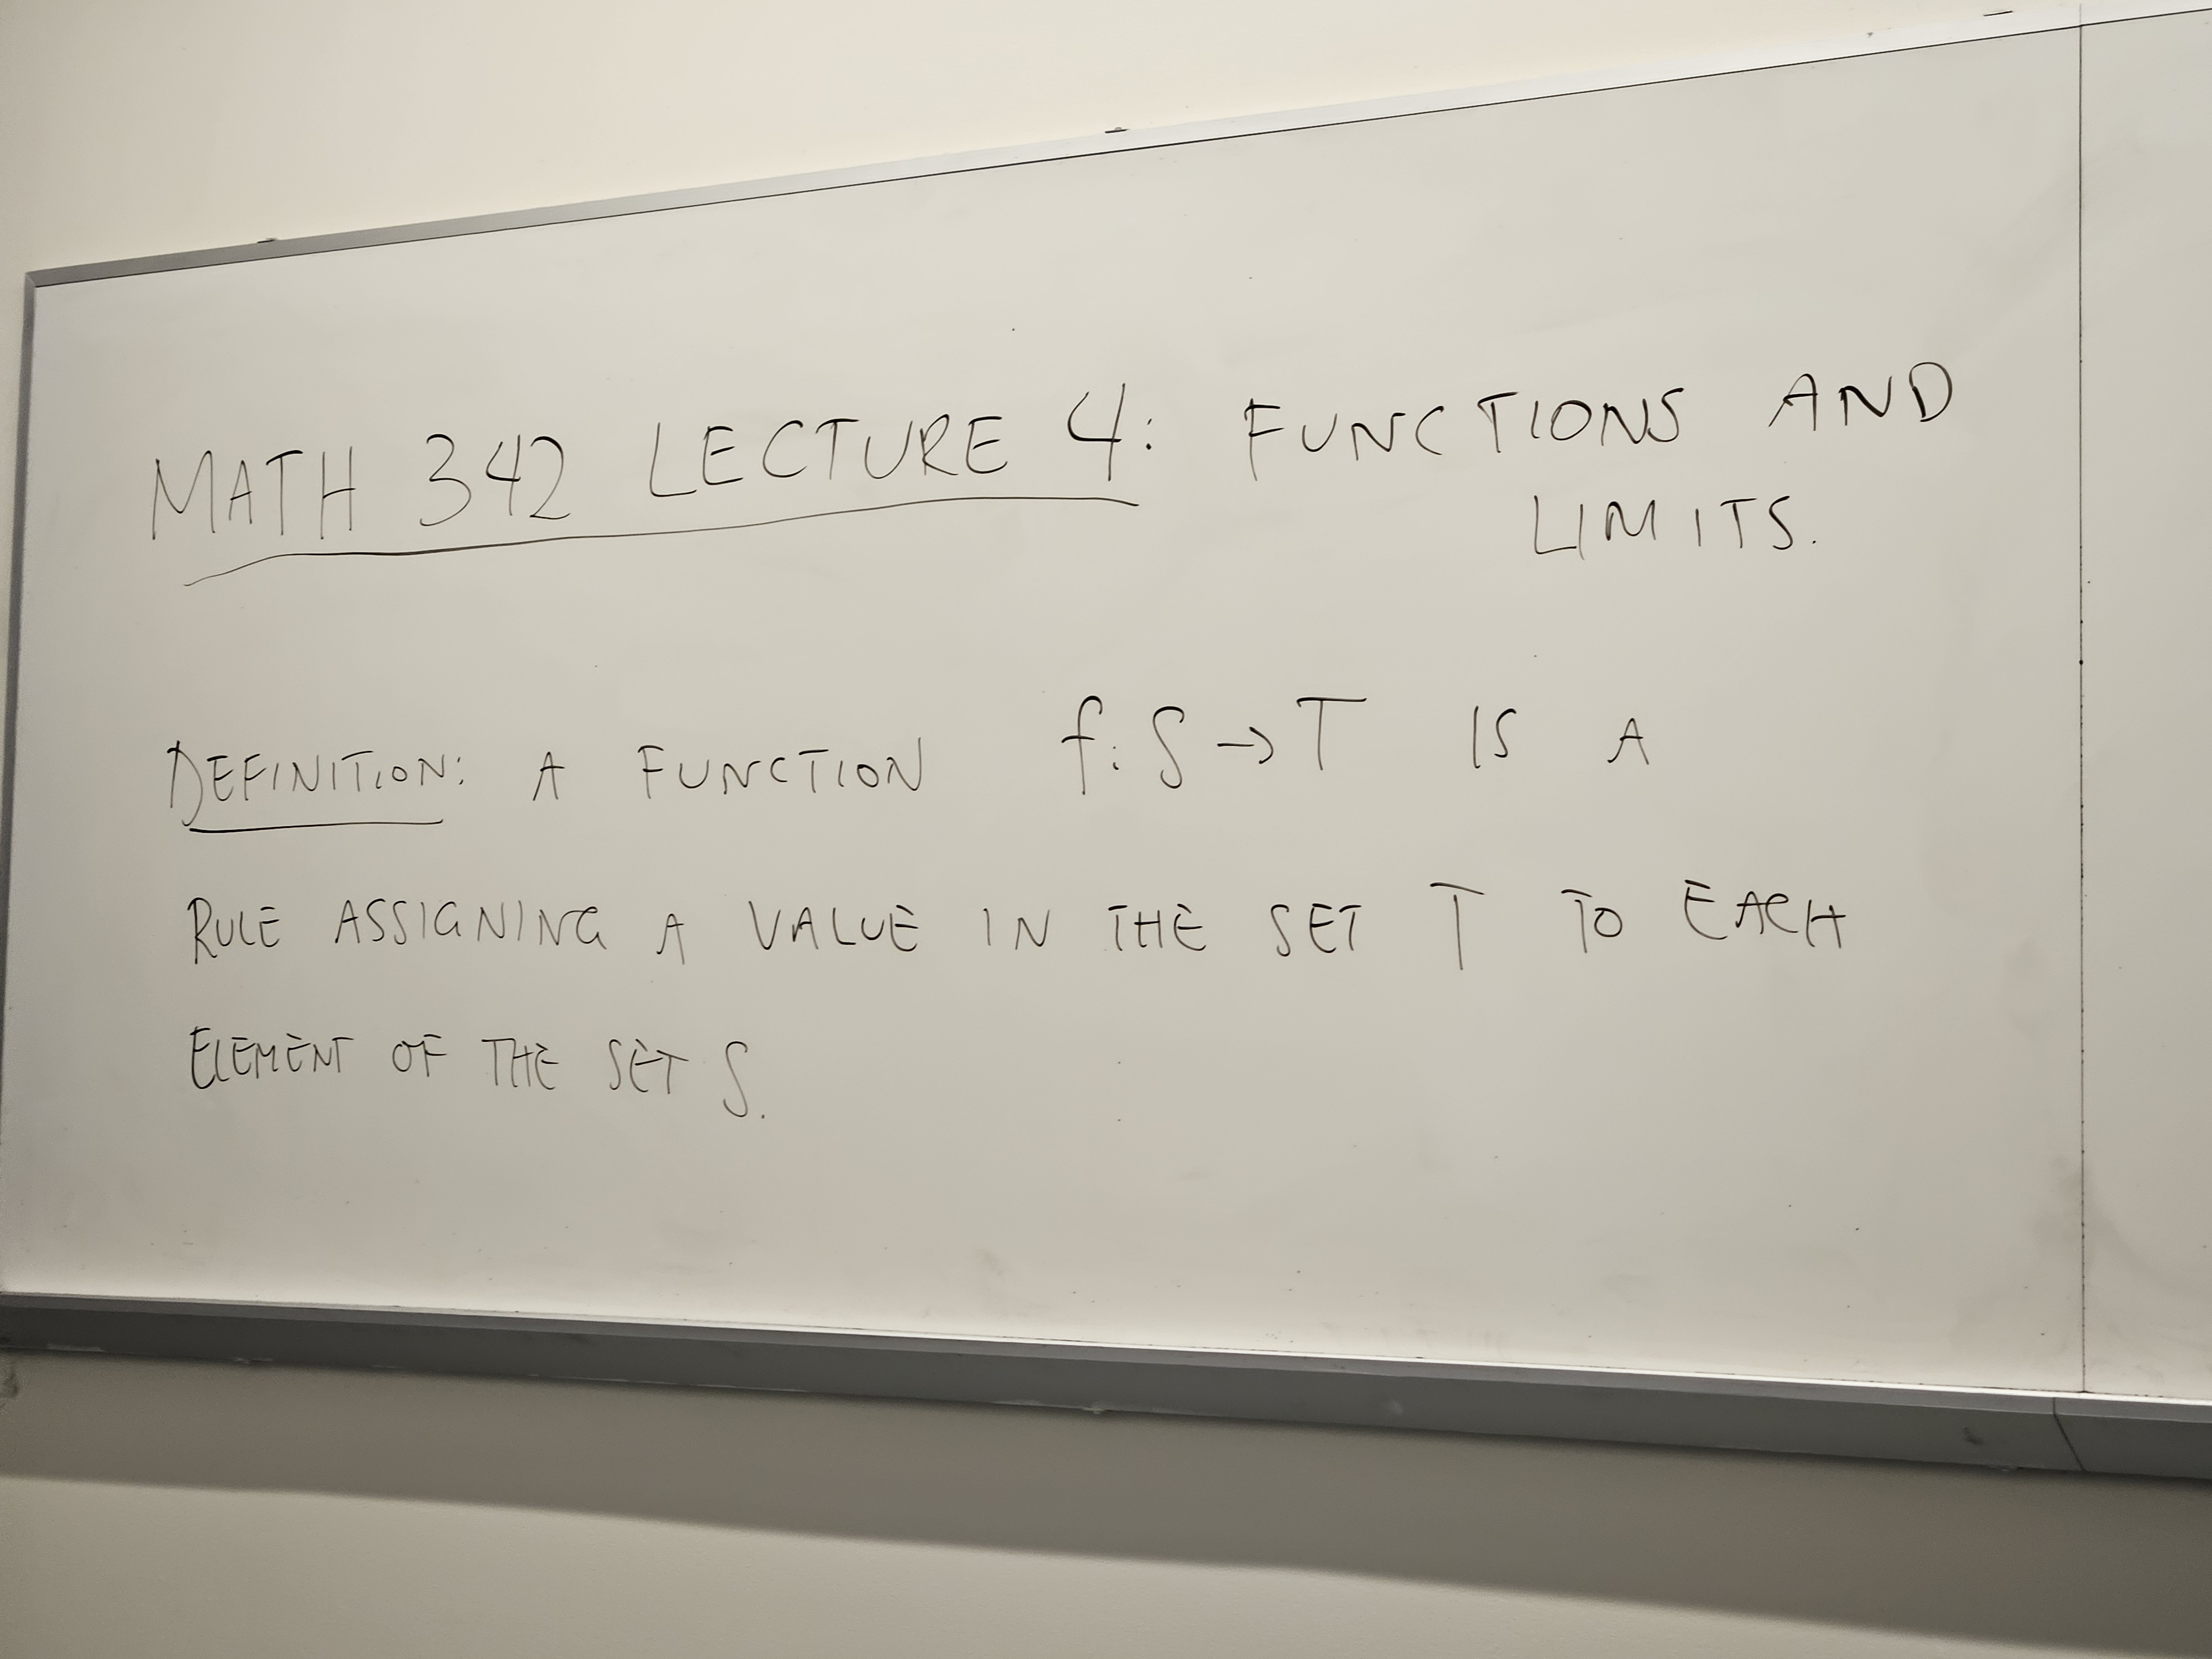 MATH 342 LECTURE 4: FUNCTIONS AND
LIMITS.
DEFINITION: A FUNCTION f: S → T IS A
RULE ASSIGNING A VALUE IN THE SET T TO EACH
ELEMENT OF THE SET S.